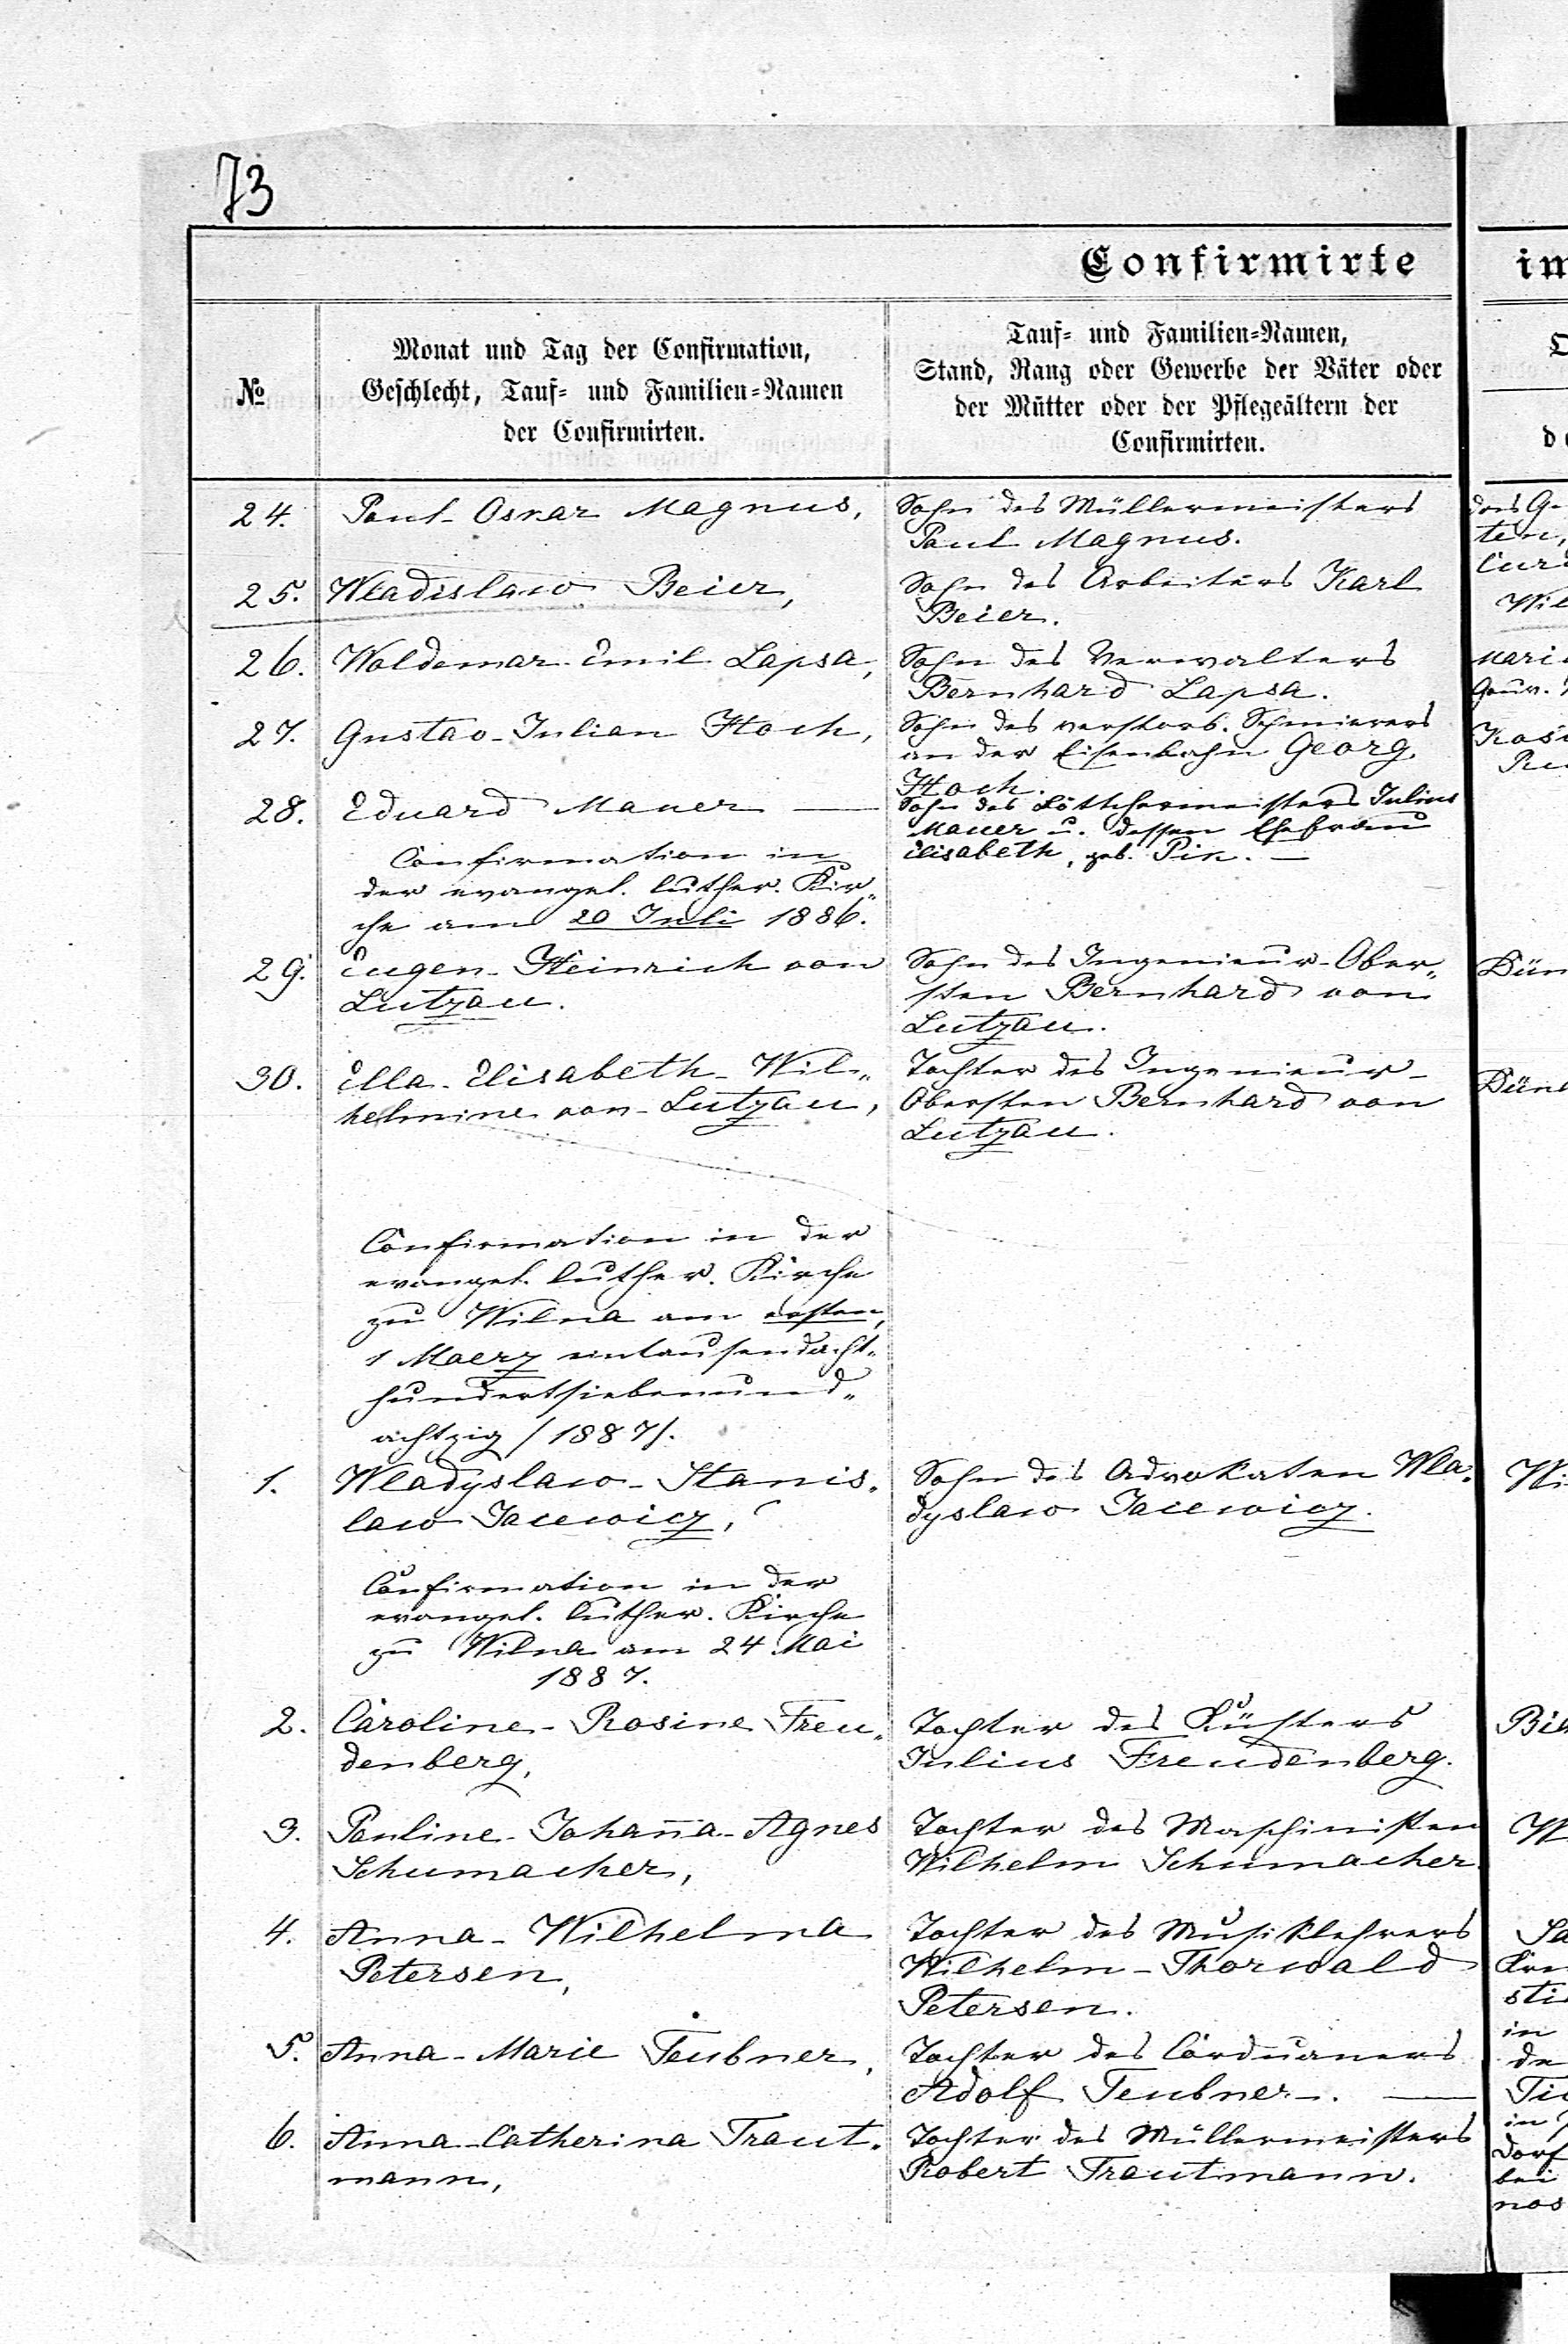 73
Confirmirte
im
№
Monat und Tag der Confirmation,
Geschlecht, Tauf- und Familien-Namen
der Confirmirten.
Tauf- und Familien-Namen,
Stand, Rang oder Gewerbe der Väter oder
der Mütter oder der Pflegeältern der
Confirmirten.
24. Paul-Oskar Magnus,
Sohn des Müllermeisters
Paul Magnus.
25. Wladislaw Beier,
Sohn des Arbeiters Karl
Beier.
26. Woldemar-Emil Lapsa,
Sohn des Verwalters
Bernhard Lapsa.
27. Gustav-Julian Hoch,
Sohn des verstorb. Schmierers
an der Eisenbahn Georg
Hoch.
28. Eduard Mauer —
Sohn des Böttchermeisters Julius
Mauer u. dessen Ehefrau
Elisabeth, geb. Pik. —
Confirmation in
der evangel. luther. Kir„
che am 20 Juli 1886.
29. Eugen-Heinrich von
Lutzau.
Sohn des Ingenieur-Ober„
sten Bernhard von
Lutzau.
30. Ella-Elisabeth-Wil„
helmine von-Lutzau,
Tochter des Ingenieur-
Obersten Bernhard von
Lutzau.
Confirmation in der
evangel. luther. Kirche
zu Wilna am ersten,
1 Maerz eintausendacht„
hundertsiebenund„
achtzig /1887/.
1. Wladyslaw-Stanis„
law Jacewicz,
Sohn des Advokaten Wla„
dyslaw Jacewicz.
Confirmation in der
evangel. luther. Kirche
zu Wilna am 24 Mai
1887.
2. Caroline-Rosine Freu„
denberg,
Tochter des Küsters
Julius Freudenberg.
3. Pauline-Johan̄a-Agnes
Schumacher,
Tochter des Maschinisten
Wilhelm Schumacher.
4. Anna-Wilhelma
Petersen,
Tochter des Musiklehrers
Wilhelm-Thorwald
Petersen.
5. Anna-Marie Teubner,
Tochter des Corduaners
Adolf Teubner. —
6. Anna-Catherina Traut„
mann,
Tochter des Müllermeisters
Robert Trautmann.